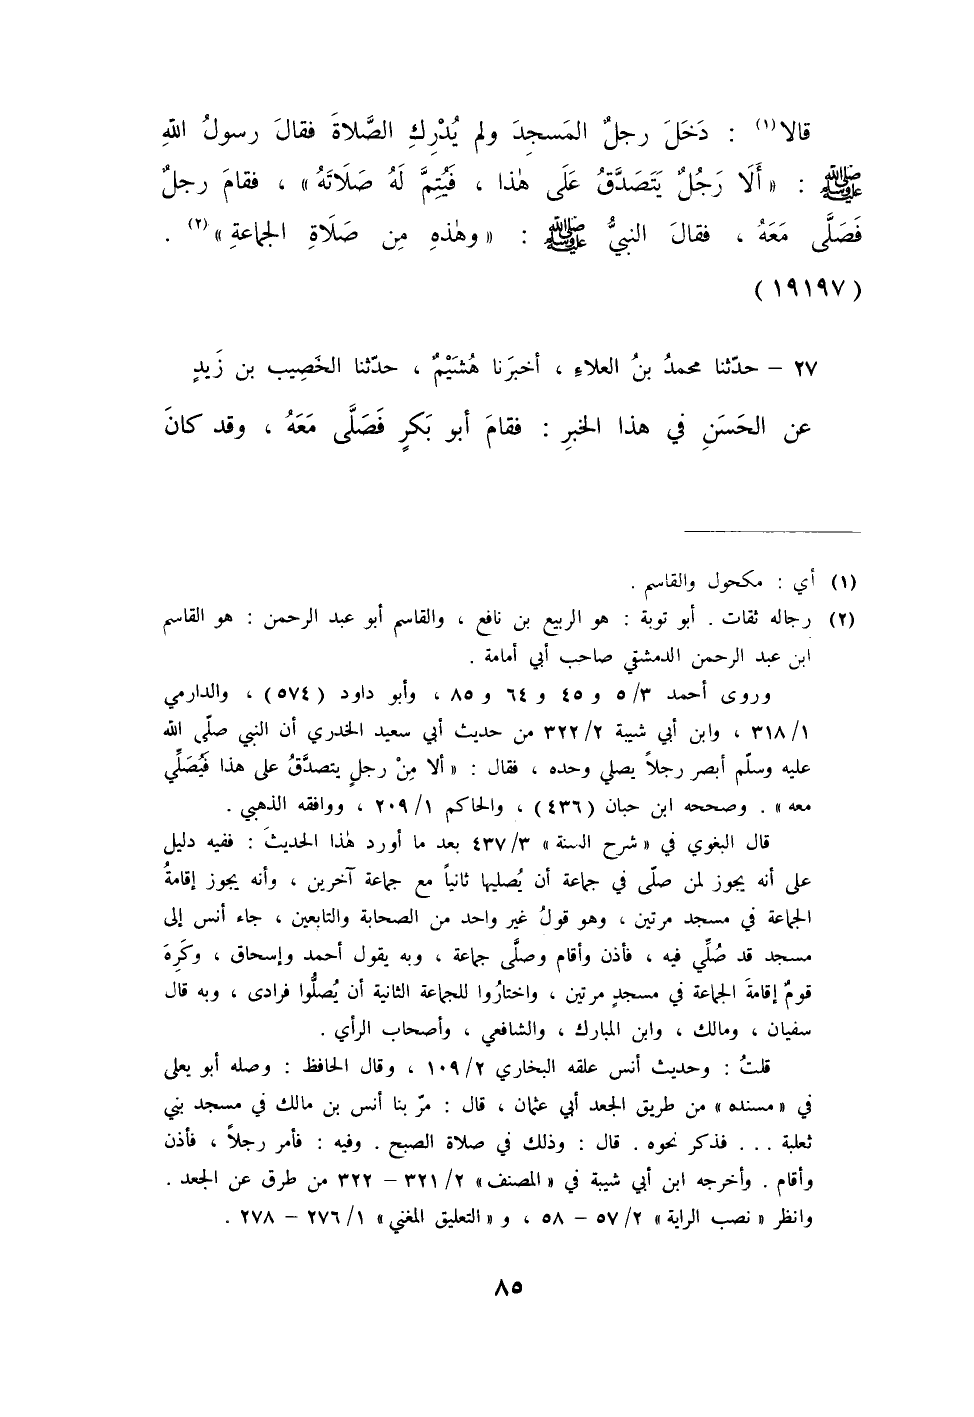 قالا(١) : دَخَلَ رجلٌ المَسجِدَ ولم يُدْرِكِ الصَّلاةَ فقالَ رسولُ اللهِ
ﷺ : « أَلَا رَجُلٌ يَتَصَدَّقُ عَلَى هٰذا ، فَيُتِمَّ لَهُ صَلَاتَهُ » ، فقامَ رجلٌ
فَصَلَّى مَعَهُ ، فقالَ النبيُّ ﷺ : « وهٰذهِ مِن صَلَاةِ الجماعةِ »(٢) .
( ١٩١٩٧ )
٢٧ – حدّثنا محمدُ بنُ العلاءِ ، أخبرَنا هُشَيْمٌ ، حدّثنا الخَصِيب بن زَيدٍ
عن الحَسَنِ في هذا الخبرِ : فقامَ أبو بَكرٍ فَصَلَّى مَعَهُ ، وقد كانَ
(١) أي : مكحول والقاسم .
(٢) رجاله ثقات . أبو توبة : هو الربيع بن نافع ، والقاسم أبو عبد الرحمن : هو القاسم
ابن عبد الرحمن الدمشقي صاحب أبي أمامة .
وروى أحمد ٣/ ٥ و ٤٥ و ٦٤ و ٨٥ ، وأبو داود ( ٥٧٤ ) ، والدارمي
١/ ٣١٨ ، وابن أبي شيبة ٢/ ٣٢٢ من حديث أبي سعيد الخدري أن النبي صلّى الله
عليه وسلّم أبصر رجلاً يصلي وحده ، فقال : « ألا مِنْ رجلٍ يتصدَّقُ على هذا فَيُصَلِّي
معه » . وصححه ابن حبان ( ٤٣٦ ) ، والحاكم ١/ ٢٠٩ ، ووافقه الذهبي .
قال البغوي في « شرح السنة » ٣/ ٤٣٧ بعد ما أورد هٰذا الحديثَ : ففيه دليل
على أنه يجوز لمن صلّى في جماعة أن يُصليها ثانياً مع جماعة آخرين ، وأنه يجوز إقامةُ
الجماعة في مسجد مرتين ، وهو قولُ غير واحد من الصحابة والتابعين ، جاء أنس إلى
مسجد قد صُلِّي فيه ، فأذن وأقام وصلَّى جماعة ، وبه يقول أحمد وإسحاق ، وكَرِهَ
قومٌ إقامةَ الجماعة في مسجدٍ مرتين ، واختارُوا للجماعة الثانية أن يُصلُّوا فرادى ، وبه قال
سفيان ، ومالك ، وابن المبارك ، والشافعي ، وأصحاب الرأي .
قلتُ : وحديث أنس علقه البخاري ٢/ ١٠٩ ، وقال الحافظ : وصله أبو يعلى
في « مسنده » من طريق الجعد أبي عثمان ، قال : مرّ بنا أنس بن مالك في مسجد بني
ثعلبة . . . فذكر نحوه . قال : وذلك في صلاة الصبح . وفيه : فأمر رجلاً ، فأذن
وأقام . وأخرجه ابن أبي شيبة في « المصنف » ٢/ ٣٢١ – ٣٢٢ من طرق عن الجعد .
وانظر « نصب الراية » ٢/ ٥٧ – ٥٨ ، و « التعليق المغني » ١/ ٢٧٦ – ٢٧٨ .
٨٥